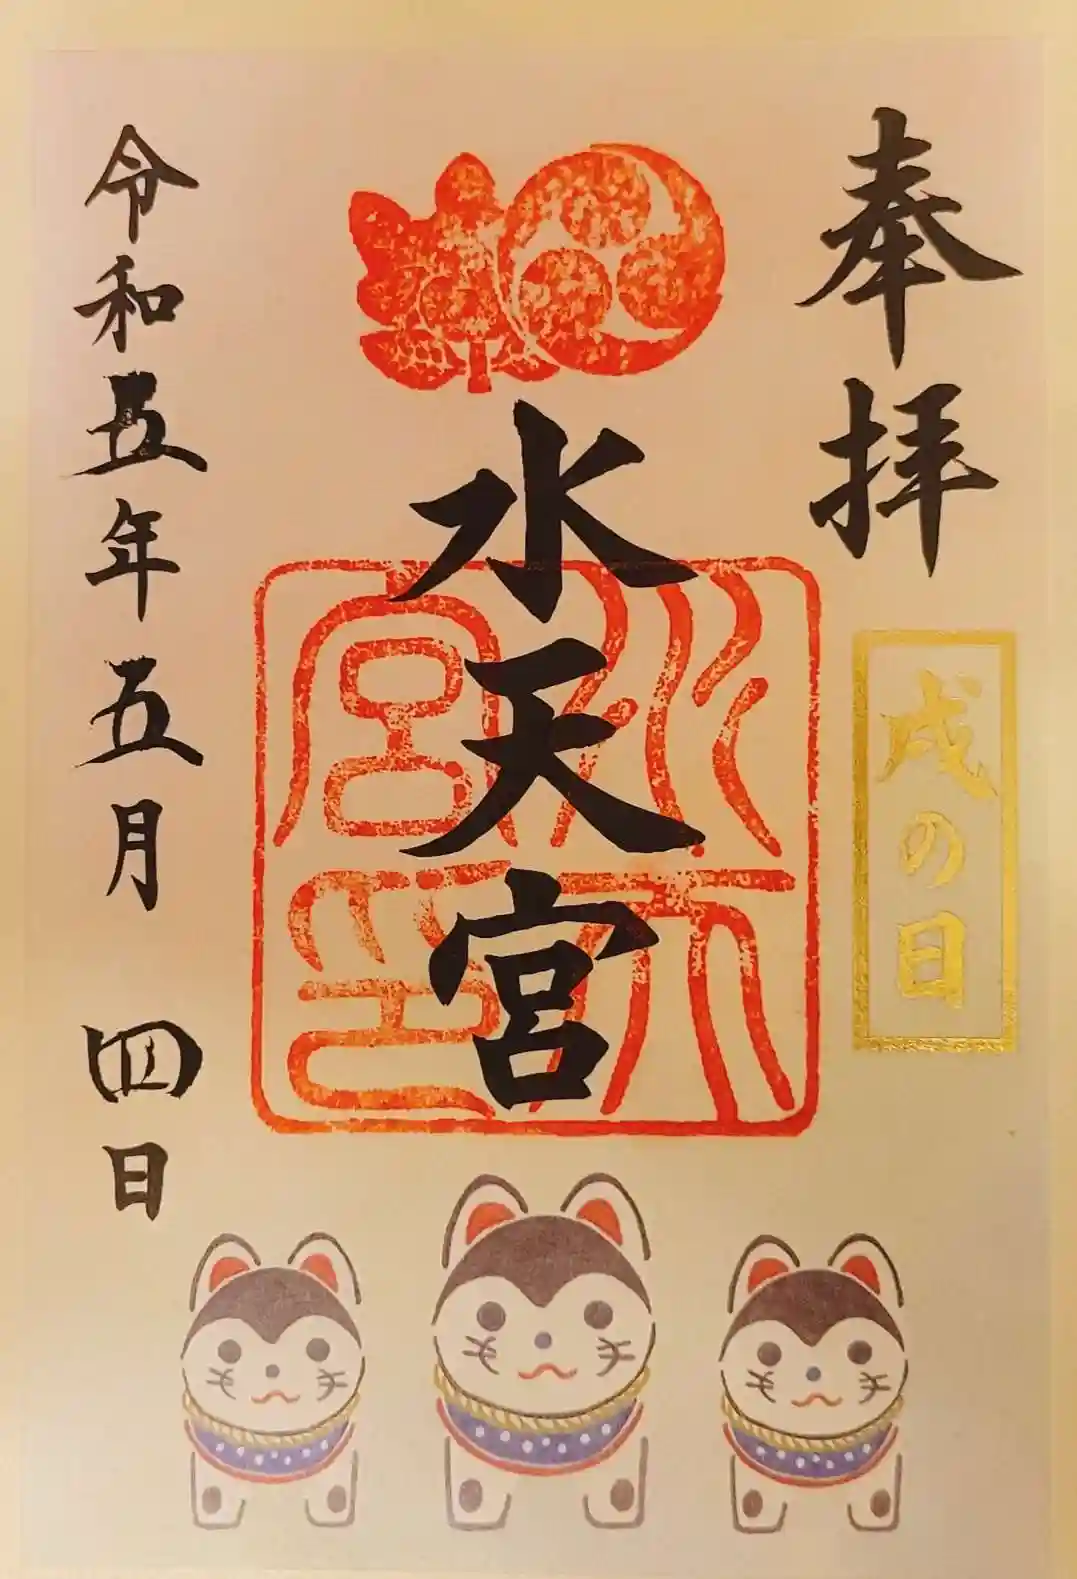 奉拝
戌の日
水天宮
水天宮印
令和五年五月 四日